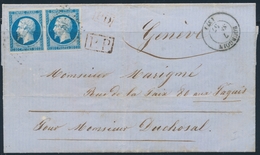 Genève
P.D
Monsieur Marigné
Rue de la Paix 20 aux Paquis
Pour Monsieur Duchosal